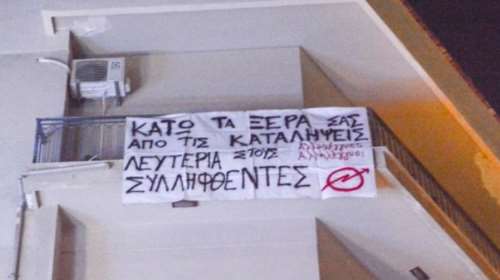 ΚΑΤΩ ΤΑ ΞΕΡΑ ΣΑΣ
ΑΠΟ ΤΙΣ ΚΑΤΑΛΗΨΕΙΣ
ΛΕΥΤΕΡΙΑ ΣΤΟΥΣ
ΣΥΛΛΗΦΘΕΝΤΕΣ